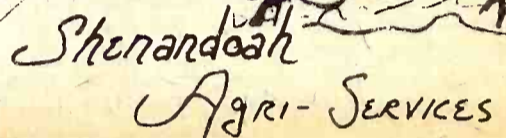 Shenandoah
Agri-Services